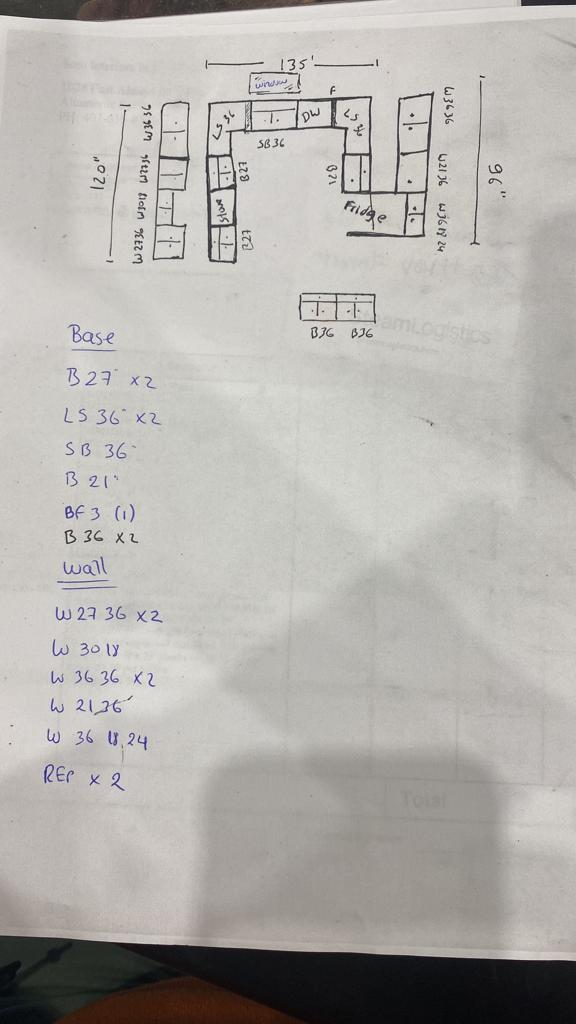 135'
window
120"
W3636
W2736
W3018
W2736
LS36
SB36
DW
F
LS36
B27
Stove
B27
B21
Fridge
W3636
W2136
W36 18 24
96"
B36 B36
Base
B27" x2
LS 36" x2
SB 36"
B 21"
BF3 (1)
B 36 x2
Wall
W27 36 x2
W 30 18
W 36 36 x2
W 21,36"
W 36 18,24
REP x 2
Total